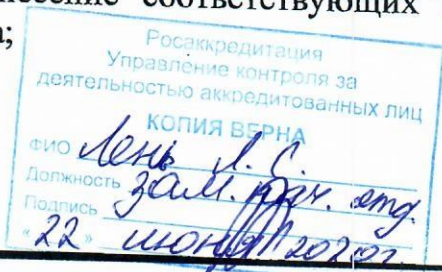 несение соответствующих
а;
Росаккредитация
Управление контроля за
деятельностью аккредитованных лиц
КОПИЯ ВЕРНА
ФИО Лень Л. С.
Должность зам. нач. отд.
Подпись
"22" июня 2020г.